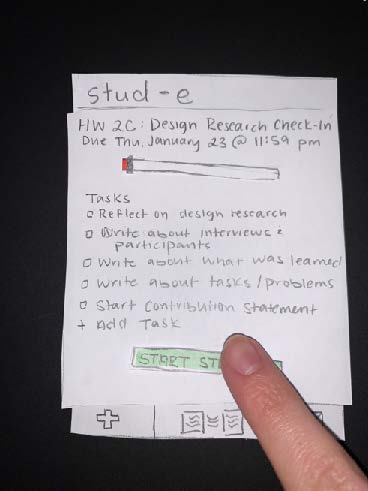 stud-e
HW 2C: Design Research Check-In
Due Thu, January 23 @ 11:59 pm
Tasks
Reflect on design research
Write about interviews &
participants
Write about what was learned
Write about tasks/problems
Start Contribution Statement
+ Add Task
START